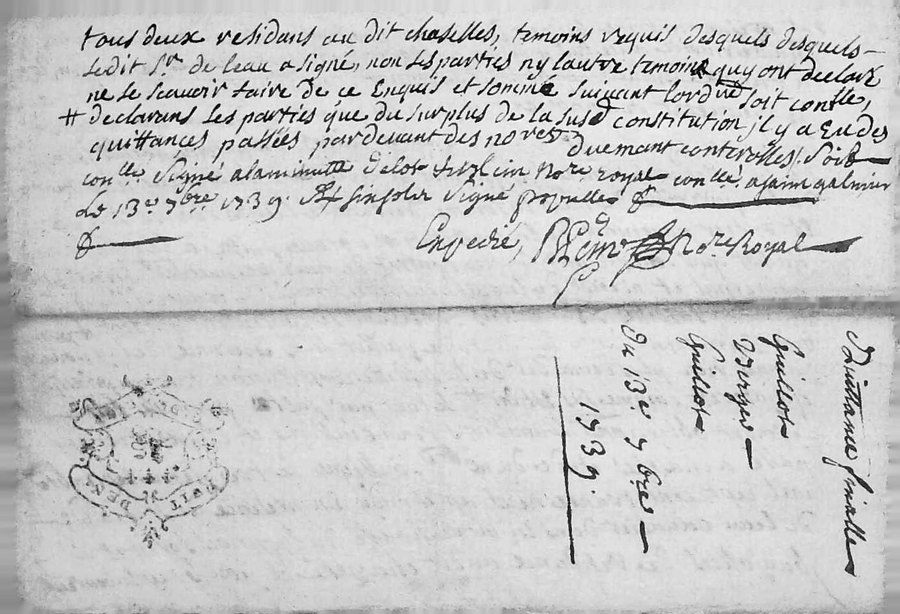 tous deux residans au dit chaselles, temoins requis desquels desquels
ledit Sr. de leau a signé, non les parties ny lautre temoins quy ont declaré
ne le scavoir faire de ce Enquis et sommé suivant lordre soit conlle,
# declarans les parties que du surplus de la susd constitution, il y a Eu des
quittances passées pardevant des nores duemant controllés, soit
conlle. Signé a la minutte Nore royal conlle. a saint galmier
Le 13e. 7bre 1739. Signé
Expedié, Nore. Royal
Quittance finalle
Guillot
Verges
Guillot
du 13e. 7bre
1739